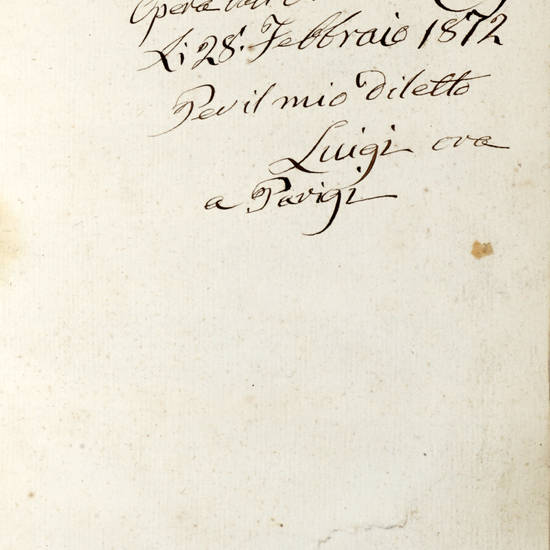 Opera
Li 28. Febbraio 1872
Per il mio diletto
Luigi ora
a Parigi